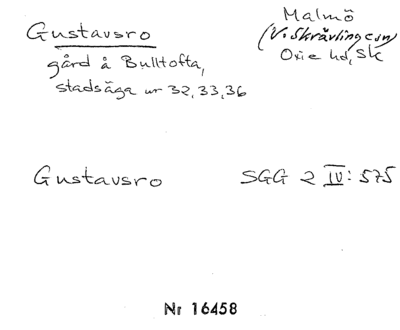 Gustavsro
gård å Bulltofta,
stadsäga nr 32, 33, 36
Malmö
(V. Skrävlinge sn)
Oxie hd, Sk
Gustavsro SGG 2 IV: 575
Nr 16458